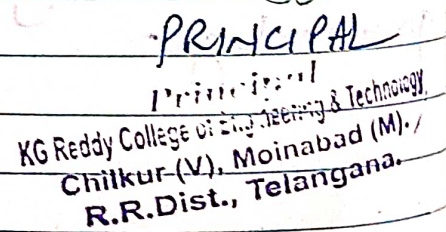 PRINCIPAL
Principal
KG Reddy College of Engineering & Technology
Chilkur (V), Moinabad (M).
R.R.Dist., Telangana.